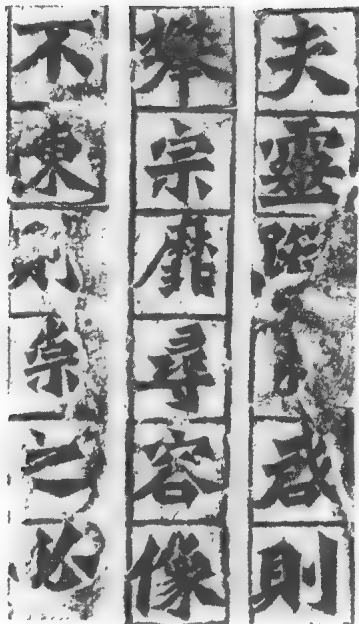 夫靈蹤啟則
攀宗靡尋容像
不陳則崇之必